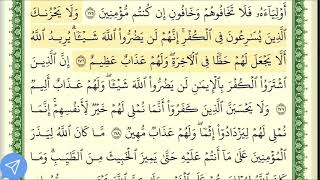 أَوْلِيَآءَهُۥ فَلَا تَخَافُوهُمْ وَخَافُونِ إِن كُنتُم مُّؤْمِنِينَ ١٧٥ وَلَا يَحْزُنكَ
ٱلَّذِينَ يُسَٰرِعُونَ فِى ٱلْكُفْرِ إِنَّهُمْ لَن يَضُرُّوا۟ ٱللَّهَ شَيْـًٔا يُرِيدُ ٱللَّهُ
أَلَّا يَجْعَلَ لَهُمْ حَظًّا فِى ٱلْءَاخِرَةِ وَلَهُمْ عَذَابٌ عَظِيمٌ ١٧٦ إِنَّ ٱلَّذِينَ
ٱشْتَرَوُا۟ ٱلْكُفْرَ بِٱلْإِيمَٰنِ لَن يَضُرُّوا۟ ٱللَّهَ شَيْـًٔا وَلَهُمْ عَذَابٌ أَلِيمٌ ١٧٧
وَلَا يَحْسَبَنَّ ٱلَّذِينَ كَفَرُوٓا۟ أَنَّمَا نُمْلِى لَهُمْ خَيْرٌ لِّأَنفُسِهِمْ إِنَّمَا
نُمْلِى لَهُمْ لِيَزْدَادُوٓا۟ إِثْمًا وَلَهُمْ عَذَابٌ مُّهِينٌ ١٧٨ مَّا كَانَ ٱللَّهُ لِيَذَرَ
ٱلْمُؤْمِنِينَ عَلَىٰ مَآ أَنتُمْ عَلَيْهِ حَتَّىٰ يَمِيزَ ٱلْخَبِيثَ مِنَ ٱلطَّيِّبِ وَمَا